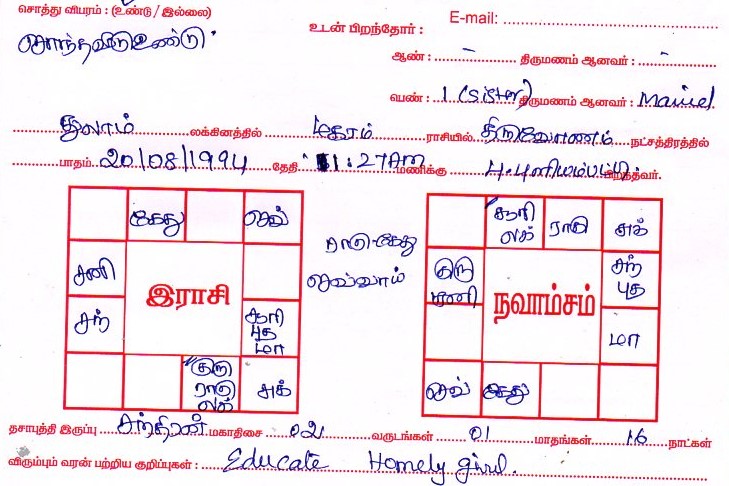 சொத்து விபரம் : (உண்டு / இல்லை)
E-mail:
உடன் பிறந்தோர் :
சொந்தவீடு உண்டு
ஆண் : திருமணம் ஆனவர் :
பெண் : 1 (sister) திருமணம் ஆனவர் :
துலாம் லக்கினத்தில் மகரம் ராசியில் திருவோணம் நட்சத்திரத்தில்
பாதம் 20/08/1994 தேதி 11:27AM மணிக்கு பிறந்தவர்.
கேது செவ்
சனி
சந்
இராசி
சூரி
புத
மா
குரு
ராகு
லக்
சுக்
ராகு-கேது
செவ்வாய்
சூரி
லக்
ராகு
சுக்
குரு
சனி
நவாம்சம்
சந்
புத
மா
செவ் கேது
தசாபுத்தி இருப்பு சந்திரன் மகாதிசை 02 வருடங்கள் 01 மாதங்கள் 16 நாட்கள்
விரும்பும் வரன் பற்றிய குறிப்புகள் : Educate Homely girl.